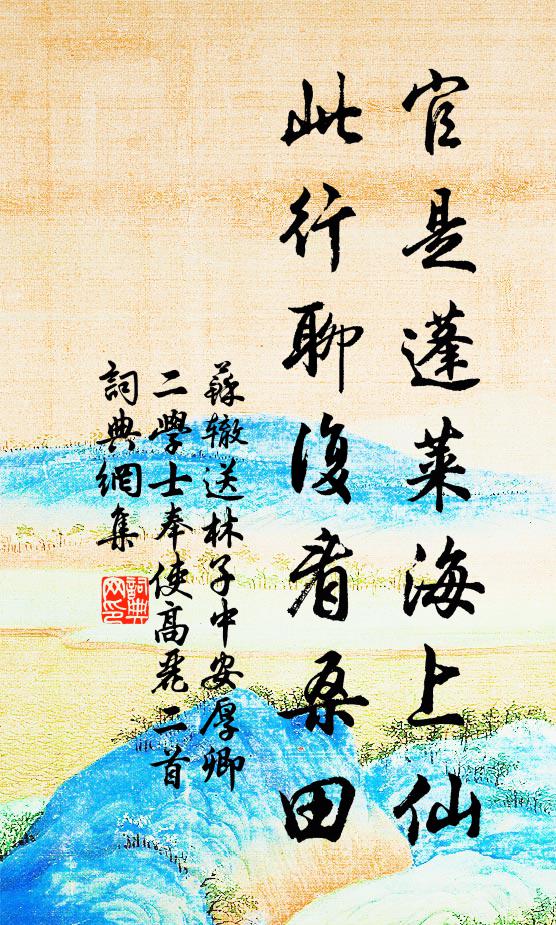 官是蓬萊海上仙
此行聊復看桑田
蘇轍送林子中安厚卿
二學士奉使高麗二首
詞典網集
詞典